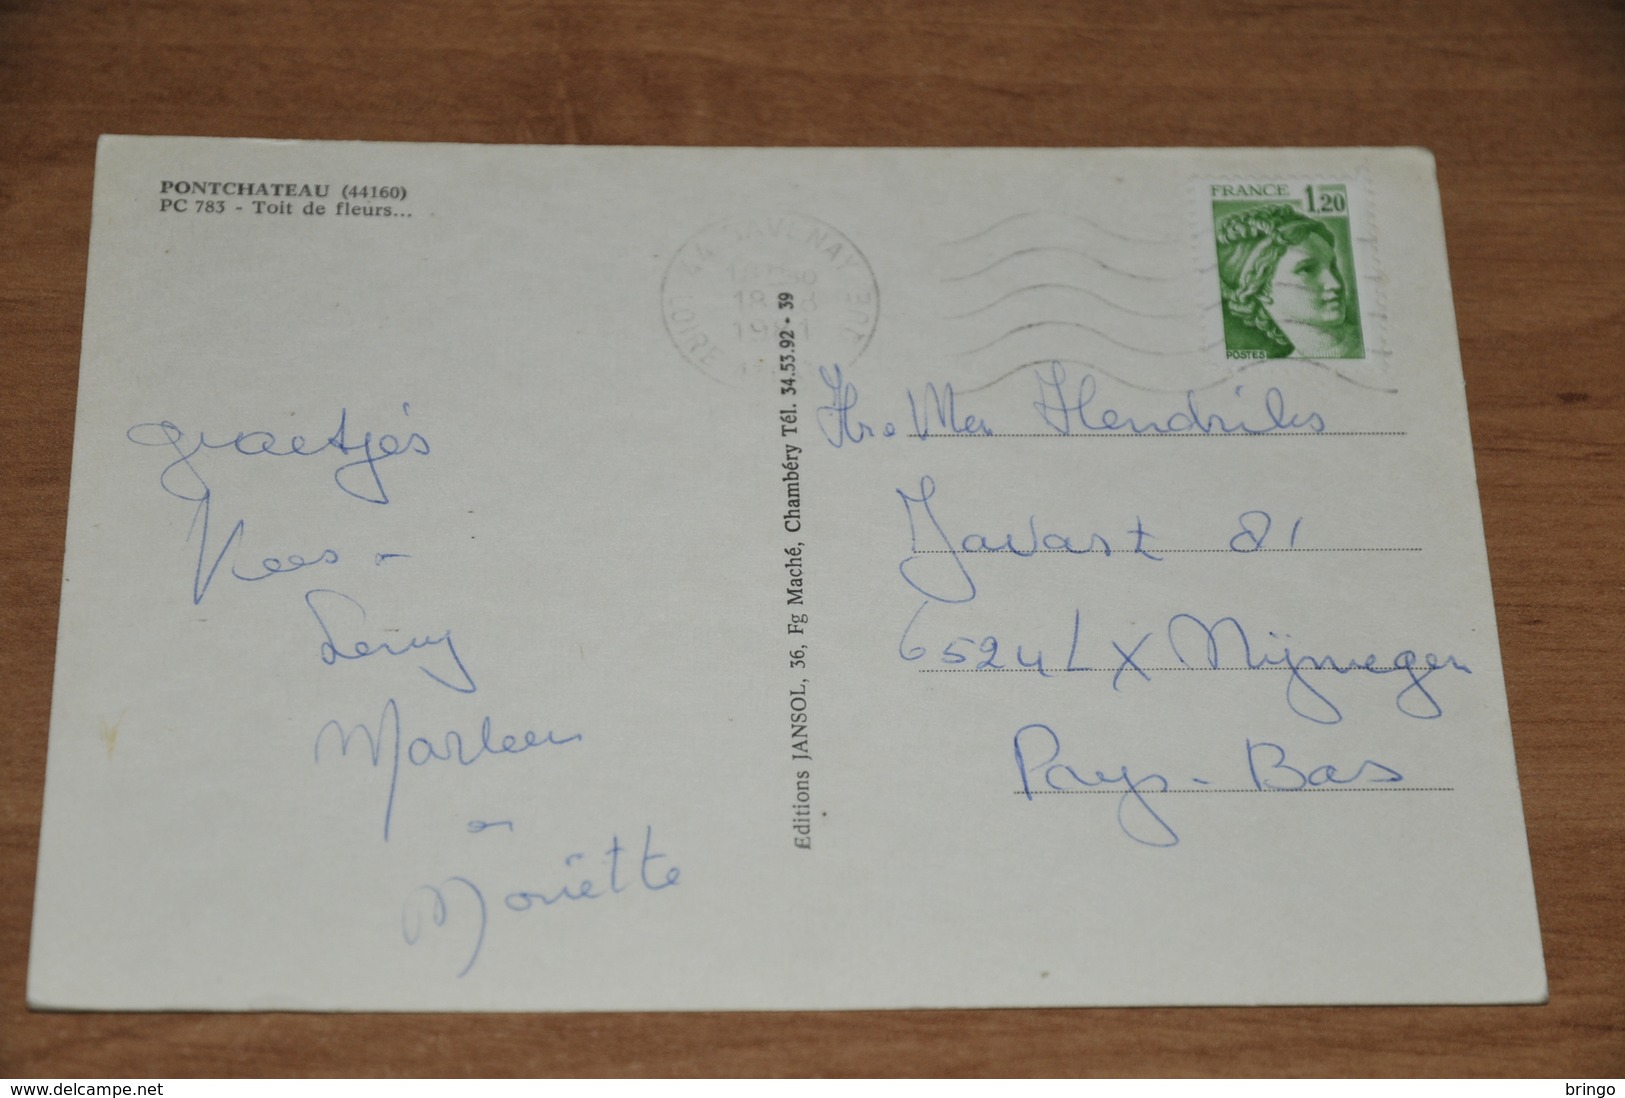 PONTCHATEAU (44160)
PC 783 - Toit de fleurs...
44 SAVENAY
LOIRE
18
1981
FRANCE 1,20
POSTES
Editions JANSOL, 36, Fg Maché, Chambéry Tél. 34.53.92 • 39
groetjes
Kees -
Leny
Marleen
en
Mariëtte
Hendriks
Javast 81
6524 LX Nijmegen
Pays-Bas
www.delcampe.net
bringo